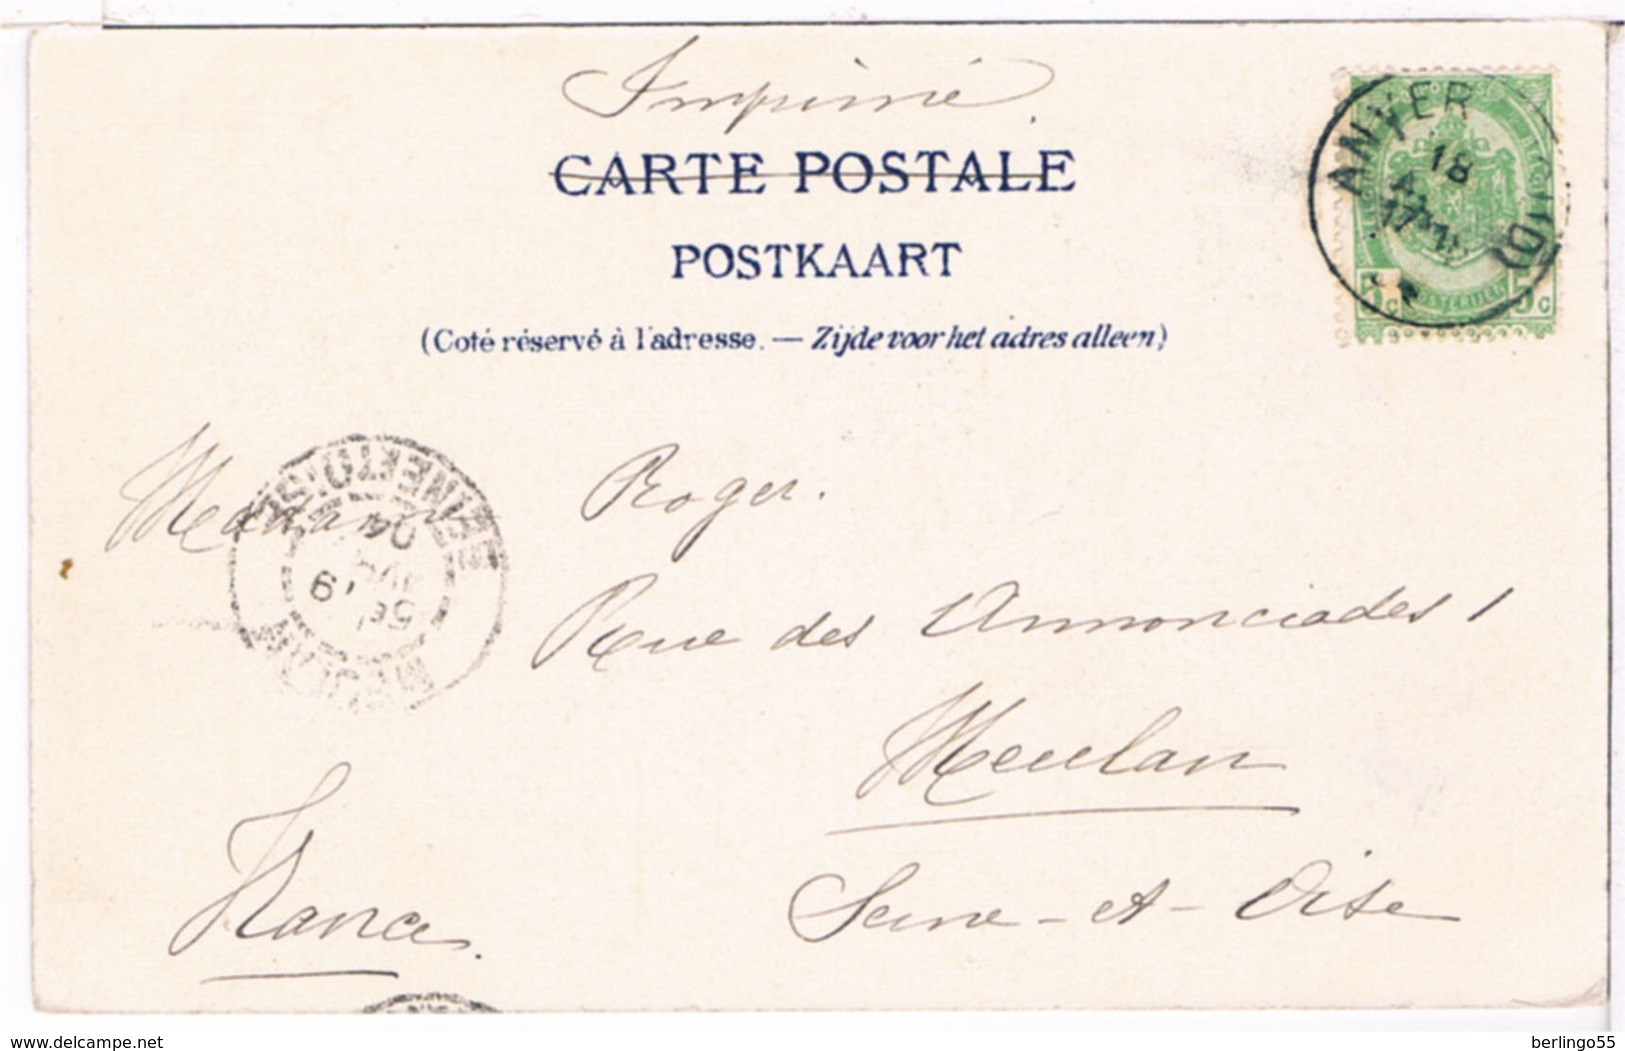 Imprimé.
CARTE POSTALE
POSTKAART
(Coté réservé à l'adresse. — Zijde voor het adres alleen)
ANVER
18
5 C 5 C
Madame Roger.
SEINE ET OISE
04
19
5E
Rue des Annonciades 1
Meulan
Seine-et-Oise
France.
delcampe.net
berlingo55